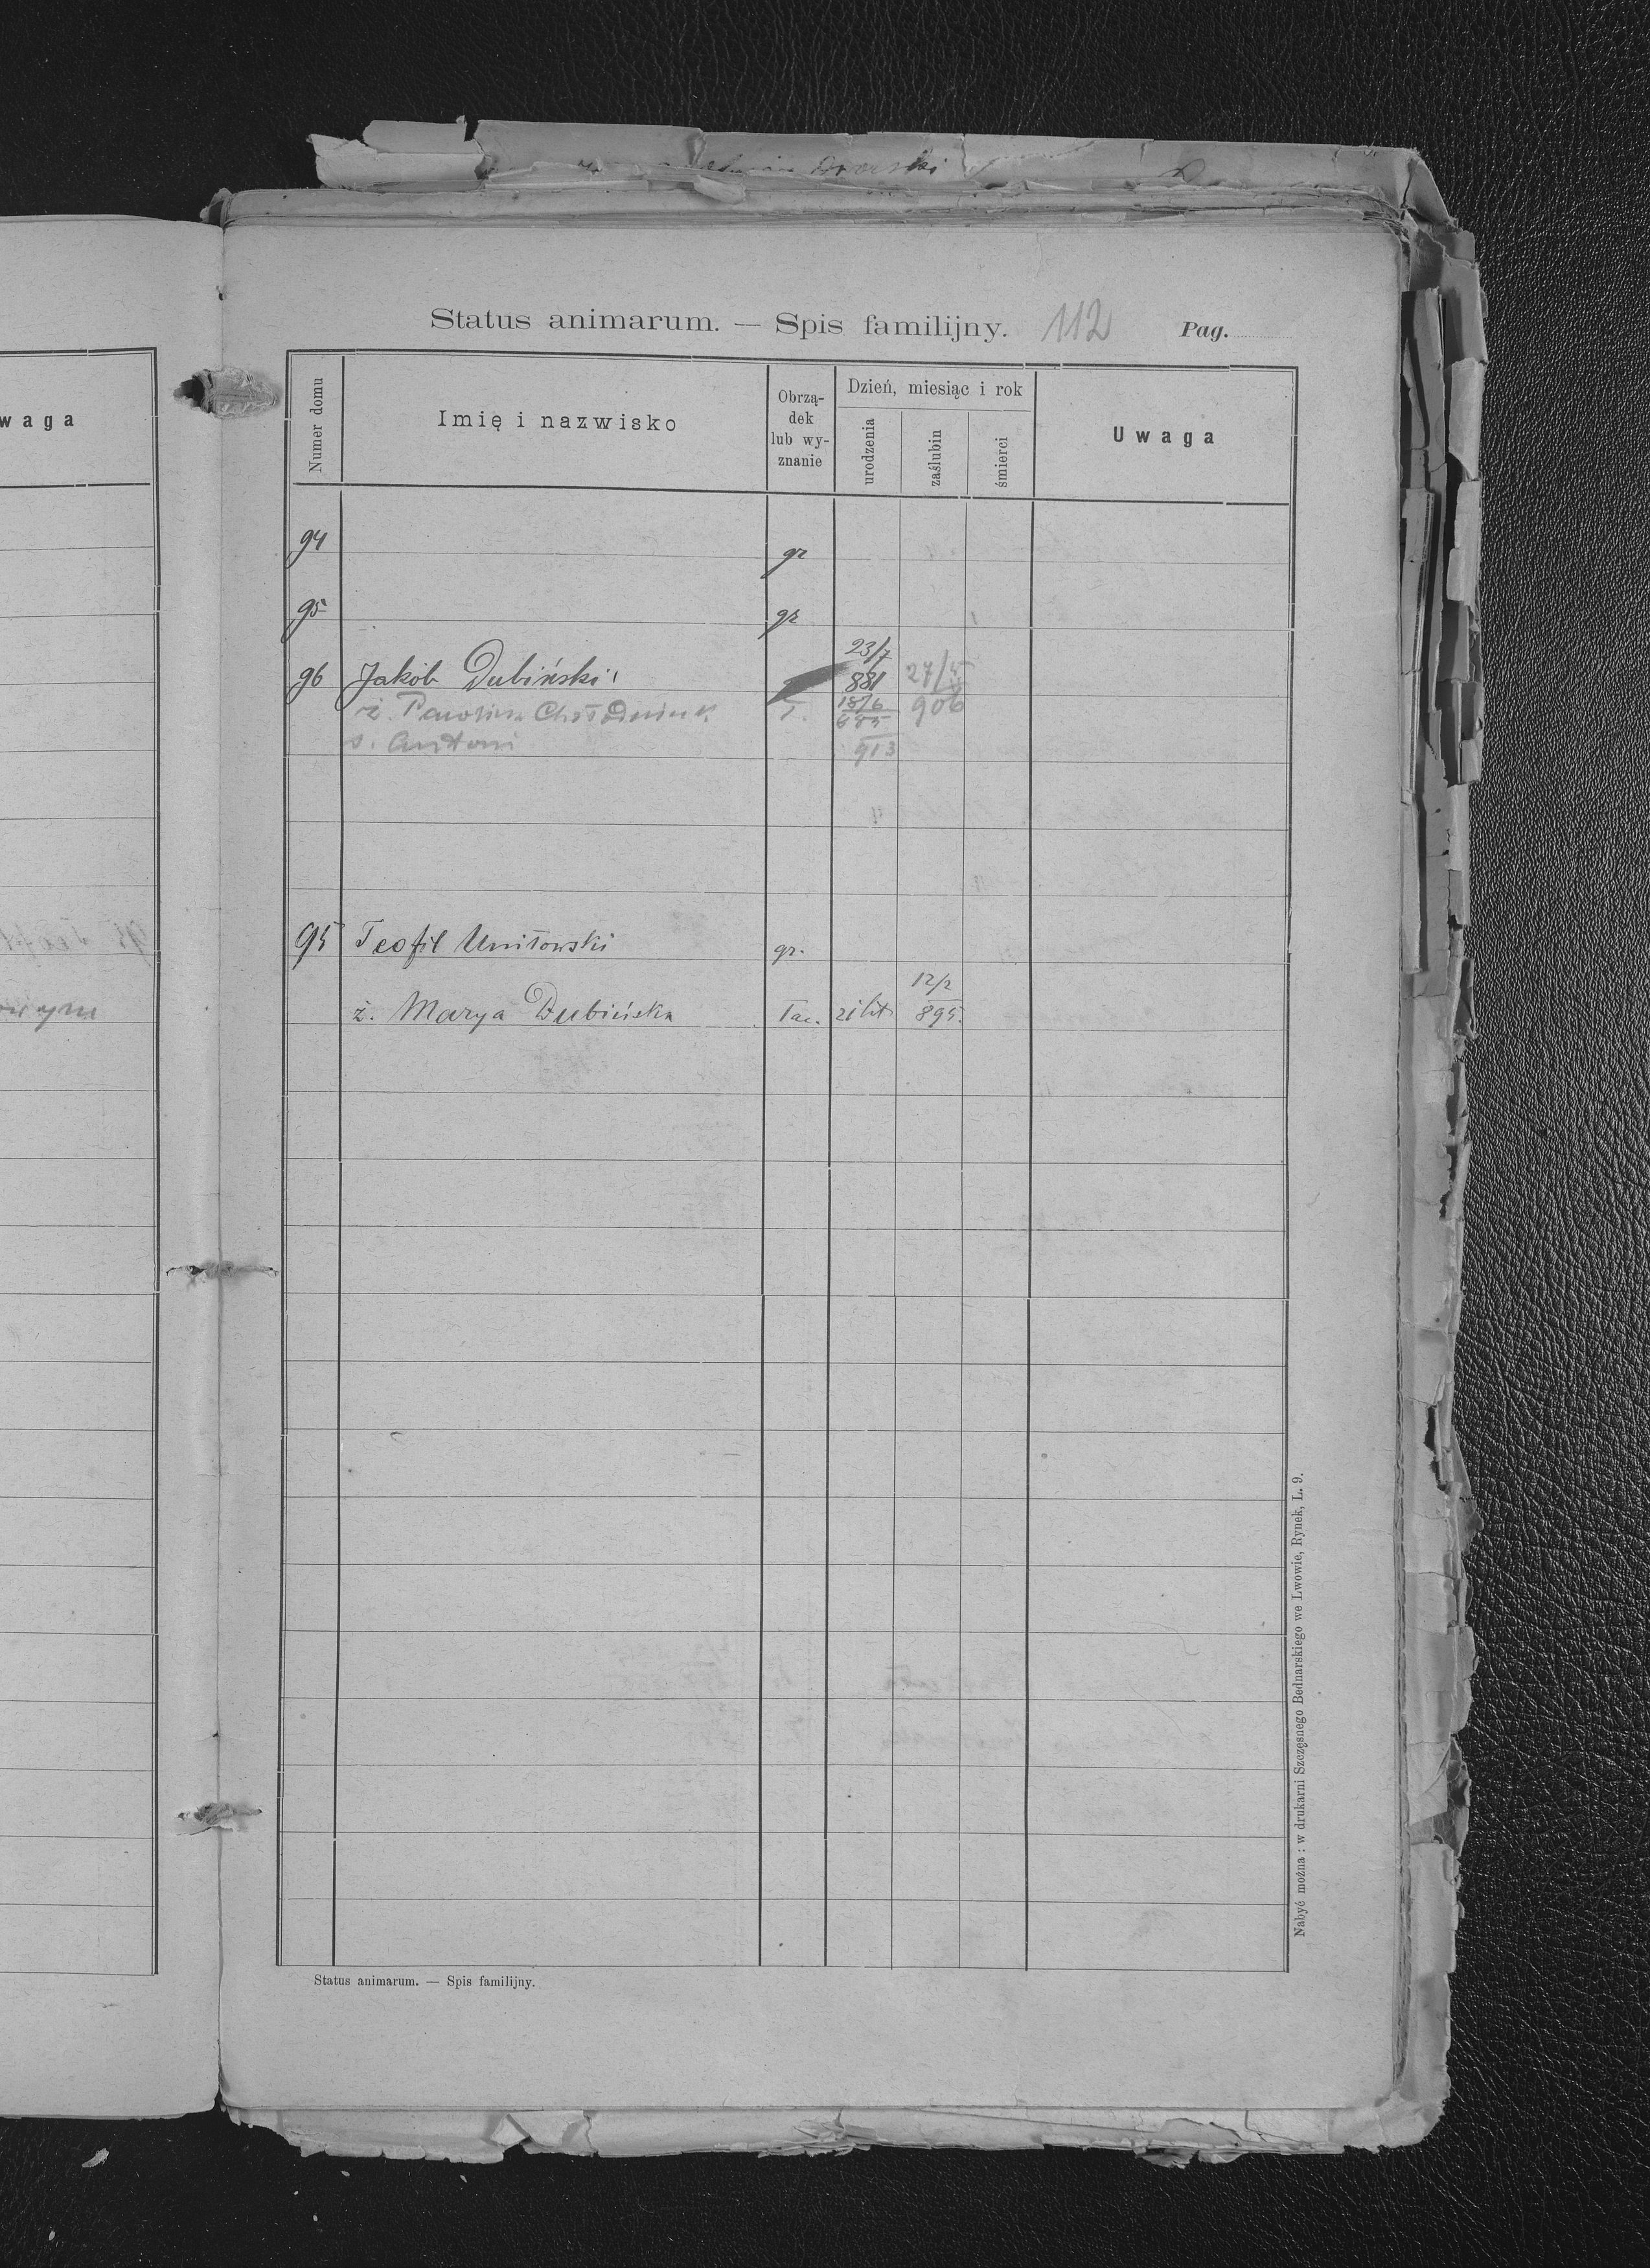 Status animarum. — Spis familijny. 112 Pag.
waga
Numer domu
Imię i nazwisko
Obrzą-
dek
lub wy-
znanie
Dzień, miesiąc i rok
urodzenia
zaślubin
śmierci
Uwaga
94 gr
95 gr
23/7
96 Jakób Dubiński 881 27/5
ż. T. 18/6 906
s. Antoni 913
95 Teofil Uniłowski gr.
12/2
ż. Marya Dubińska łac. 21 lat 895.
Status animarum. — Spis familijny.
Nabyć można: w drukarni Szczęsnego Bednarskiego we Lwowie, Rynek, L. 9.